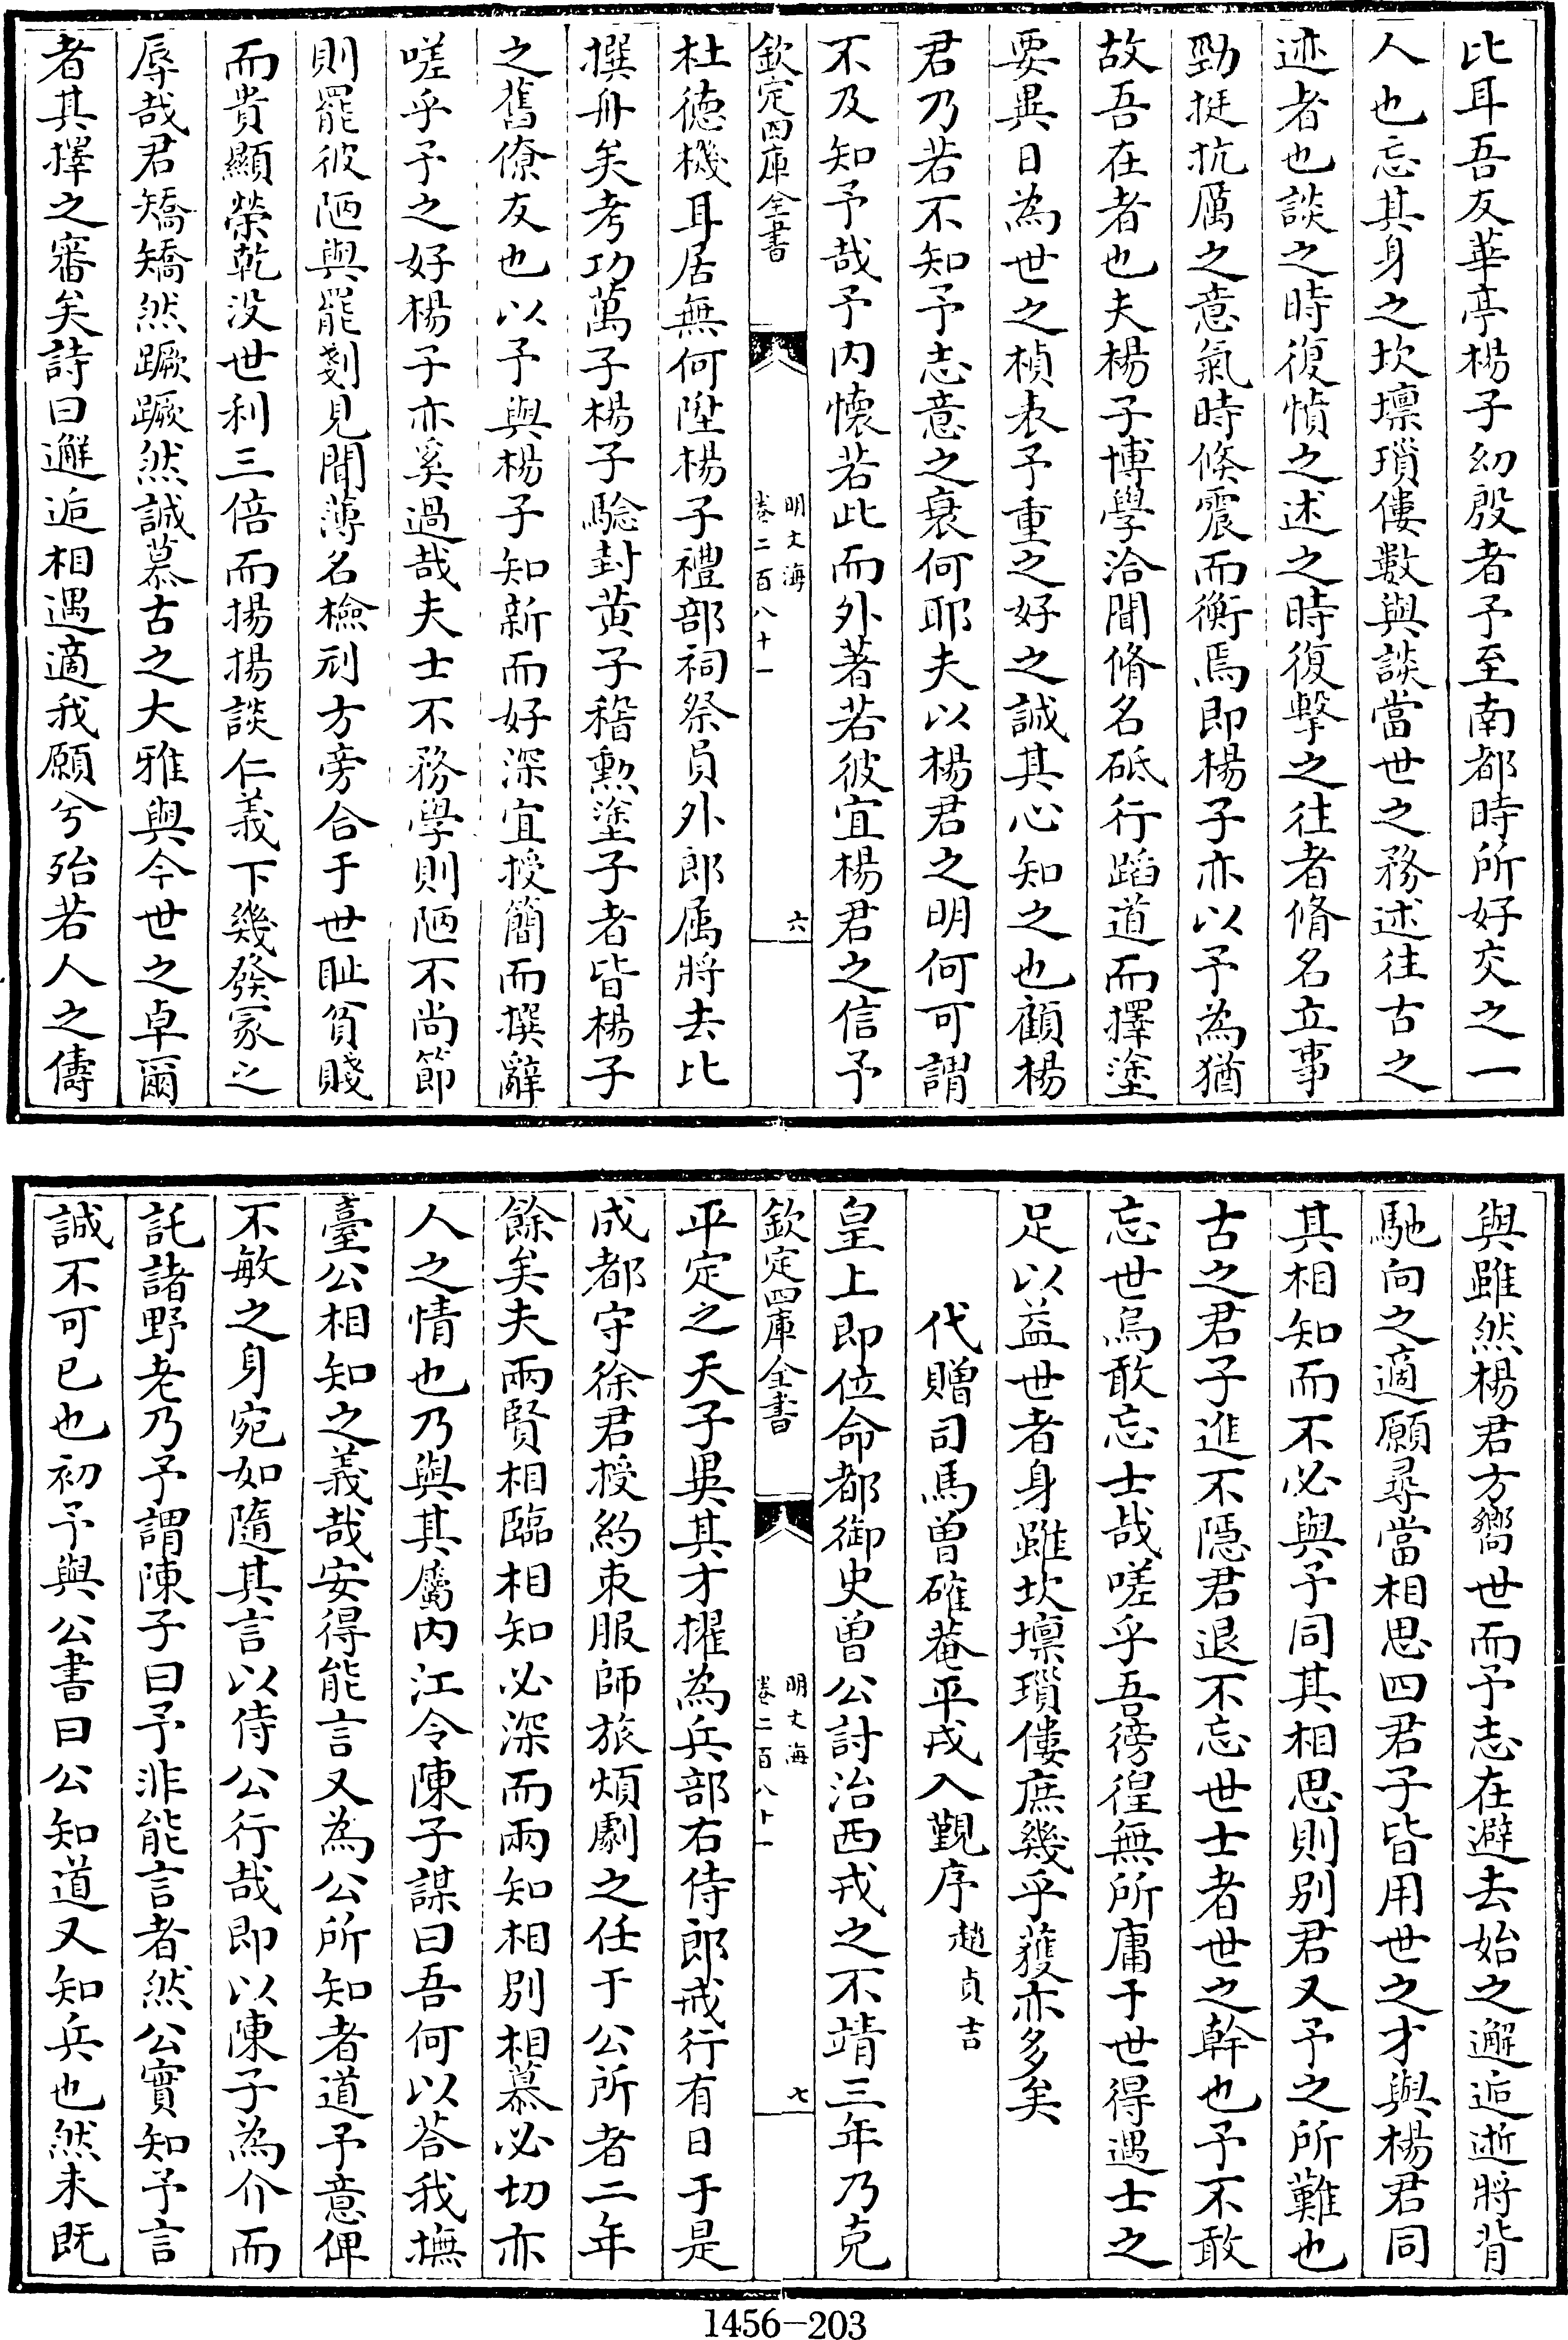 比耳吾友華亭楊子幼殷者予至南都時所好交之一
人也忘其身之坎壈瑣僂數與談當世之務述往古之
迹者也談之時復憤之述之時復擊之往者脩名立事
勁挺抗厲之意氣時倏震而衡焉即楊子亦以予為猶
故吾在者也夫楊子博學洽聞脩名砥行蹈道而擇塗
要異日為世之楨表予重之好之誠其心知之也顧楊
君乃若不知予志意之衰何耶夫以楊君之明何可謂
不及知予哉予内懷若此而外著若彼宜楊君之信予
欽定四庫全書
明文海
卷二百八十一
六
杜德機耳居無何陞楊子禮部祠祭員外郎屬將去比
撰舟矣考功萬子楊子驗封黄子稽勲塗子者皆楊子
之舊僚友也以予與楊子知新而好深宜授簡而撰辭
嗟乎予之好楊子亦奚過哉夫士不務學則陋不尚節
則罷彼陋與罷剗見聞薄名檢刓方旁合于世耻貧賤
而貴顯榮乾没世利三倍而揚揚談仁義下幾發冢之
辱哉君矯矯然蹶蹶然誠慕古之大雅與今世之卓爾
者其擇之審矣詩曰邂逅相遇適我願兮殆若人之儔
與雖然楊君方嚮世而予志在避去始之邂逅逝將背
馳向之適願尋當相思四君子皆用世之才與楊君同
其相知而不必與予同其相思則别君又予之所難也
古之君子進不隱君退不忘世士者世之幹也予不敢
忘世烏敢忘士哉嗟乎吾徬徨無所庸于世得遇士之
足以益世者身雖坎壈瑣僂庶幾乎獲亦多矣
代贈司馬曽確菴平戎入覲序 趙貞吉
皇上即位命都御史曽公討治西戎之不靖三年乃克
欽定四庫全書
明文海
卷二百八十一
七
平定之天子異其才擢為兵部右侍郎戒行有日于是
成都守徐君授約束服師旅煩劇之任于公所者二年
餘矣夫兩賢相臨相知必深而兩知相别相慕必切亦
人之情也乃與其屬内江令陳子謀曰吾何以荅我撫
臺公相知之義哉安得能言又為公所知者道予意俾
不敏之身宛如隨其言以侍公行哉即以陳子為介而
託諸野老乃予謂陳子曰予非能言者然公實知予言
誠不可已也初予與公書曰公知道又知兵也然未旣
1456-203